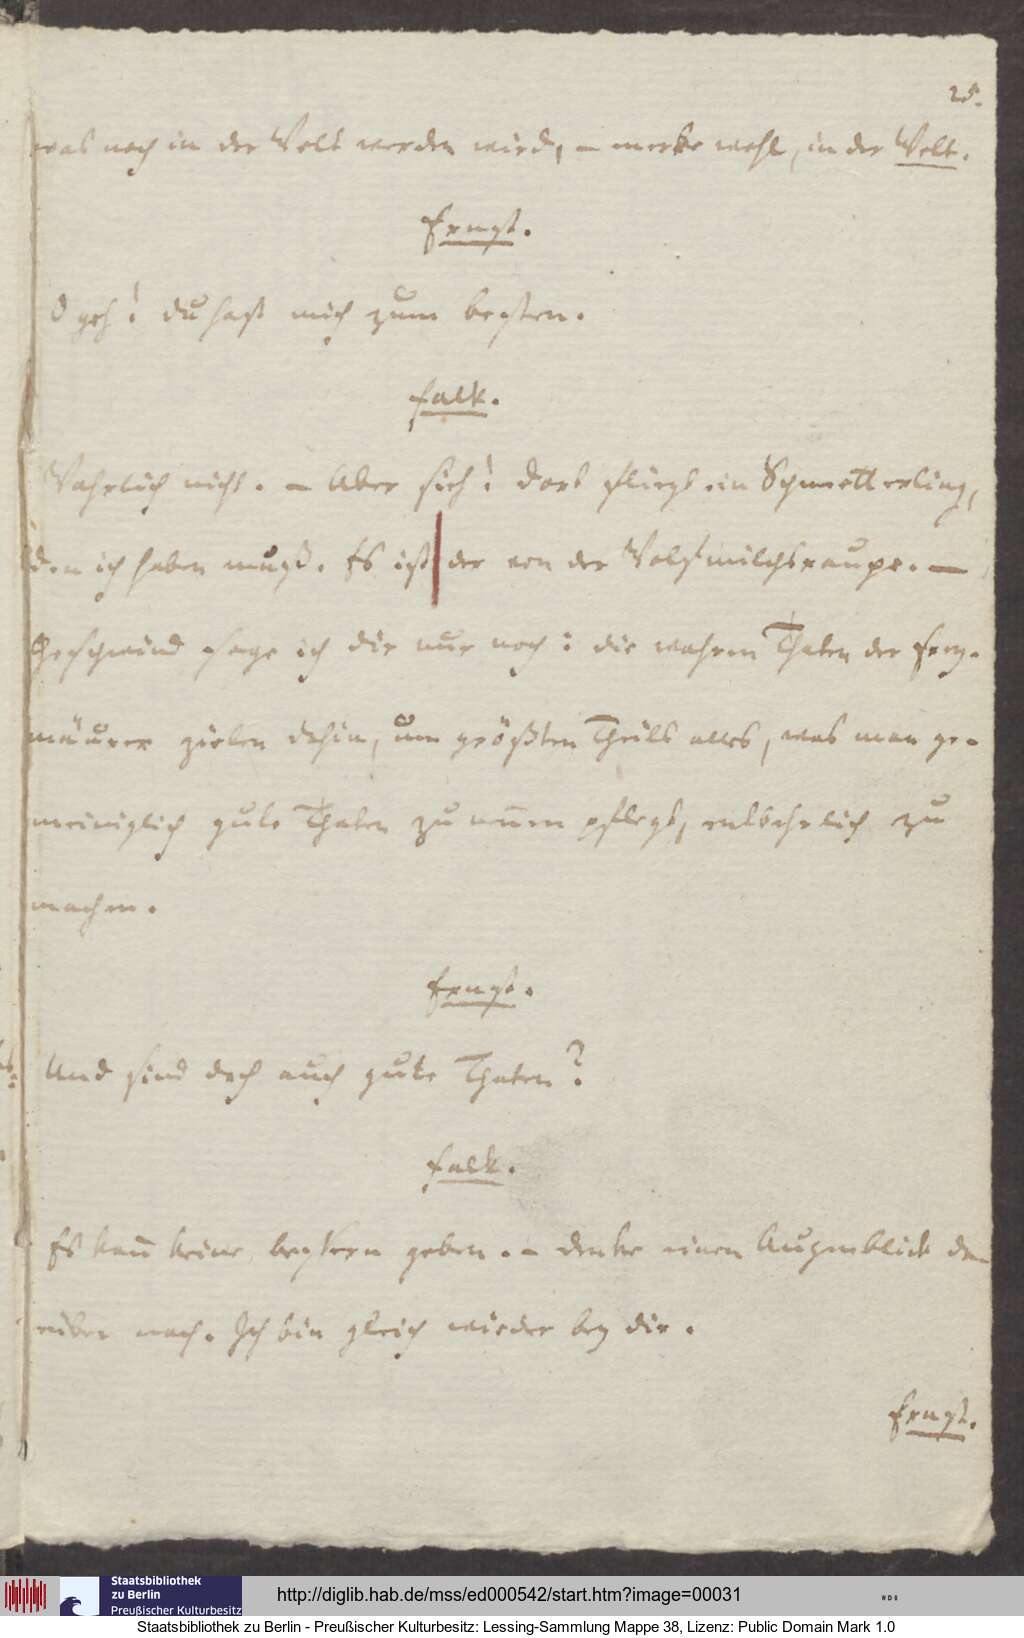 25.
was noch in der Welt werden wird, – merke wohl, in der Welt.
Ernst.
O geh! du hast mich zum besten.
Falk.
Wahrlich nicht. – Aber sieh! dort fliegt ein Schmetterling,
den ich haben muß. Es ist der von der Wolfsmilchsraupe. –
Geschwind sage ich dir nur noch: die wahren Thaten der Frey-
mäurer zielen dahin, um größten Theils alles, was man ge-
meiniglich gute Thaten zu nen̅en pflegt, entbehrlich zu
machen.
Ernst.
Und sind doch auch gute Thaten?
Falk.
Es kan̅ keine bessern geben. – Denke einen Augenblick da-
rüber nach. Ich bin gleich wieder bey dir.
Ernst.
Staatsbibliothek
zu Berlin
Preußischer Kulturbesitz
http://diglib.hab.de/mss/ed000542/start.htm?image=00031
Staatsbibliothek zu Berlin - Preußischer Kulturbesitz: Lessing-Sammlung Mappe 38, Lizenz: Public Domain Mark 1.0